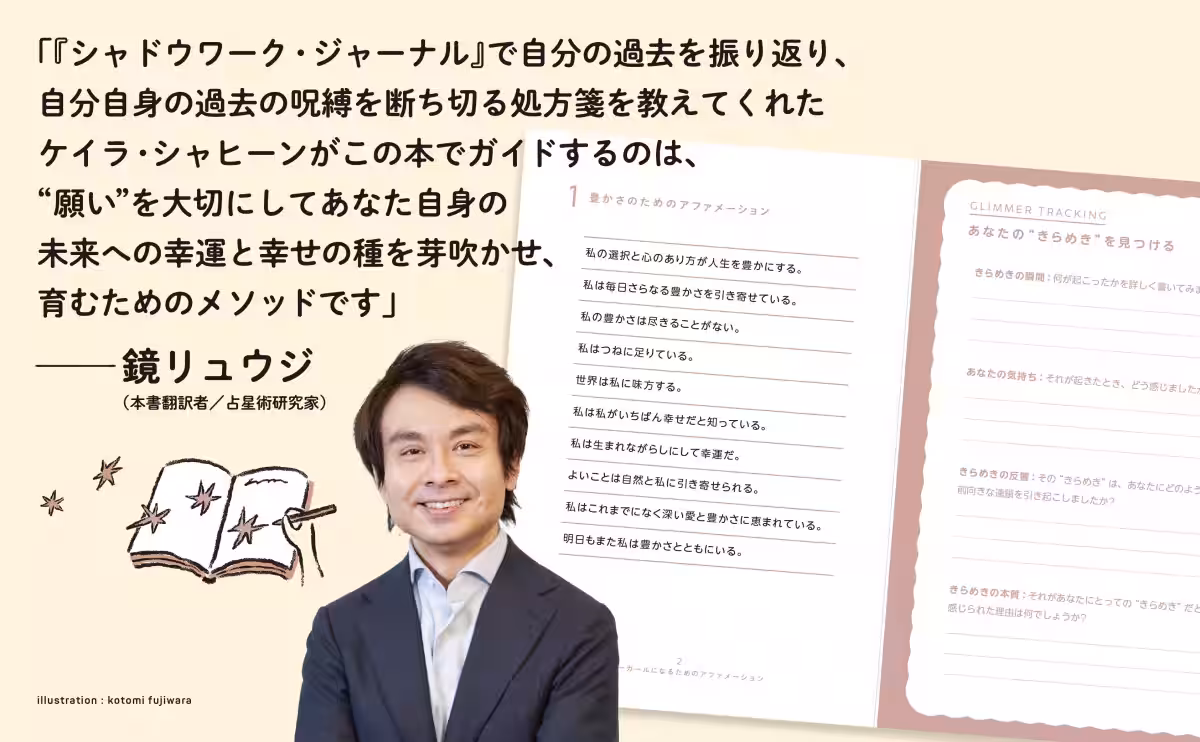 「『シャドウワーク・ジャーナル』で自分の過去を振り返り、
自分自身の過去の呪縛を断ち切る処方箋を教えてくれた
ケイラ・シャヒーンがこの本でガイドするのは、
“願い”を大切にしてあなた自身の
未来への幸運と幸せの種を芽吹かせ、
育むためのメソッドです」
鏡リュウジ
（本書翻訳者／占星術研究家）
illustration : kotomi fujiwara
1 豊かさのためのアファメーション
私の選択と心のあり方が人生を豊かにする。
私は毎日さらなる豊かさを引き寄せている。
私の豊かさは尽きることがない。
私はつねに足りている。
世界は私に味方する。
私は私がいちばん幸せだと知っている。
私は生まれながらにして幸運だ。
よいことは自然と私に引き寄せられる。
私はこれまでになく深い愛と豊かさに恵まれている。
明日もまた私は豊かさとともにいる。
2
ーガールになるためのアファメーション
GLIMMER TRACKING
あなたの“きらめき”を見つける
きらめきの瞬間：何が起こったかを詳しく書いてみま
あなたの気持ち：それが起きたとき、どう感じましたか
きらめきの反響：その“きらめき”は、あなたにどのよう
前向きな連鎖を引き起こしましたか？
きらめきの本質：それがあなたにとっての“きらめき”だと
感じられた理由は何でしょうか？